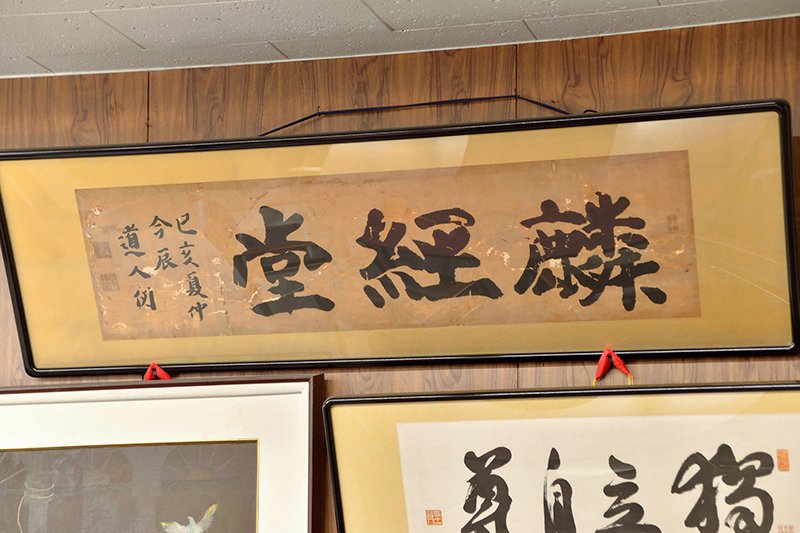 麟經堂
己亥夏仲
今辰
道人例
獨立自尊